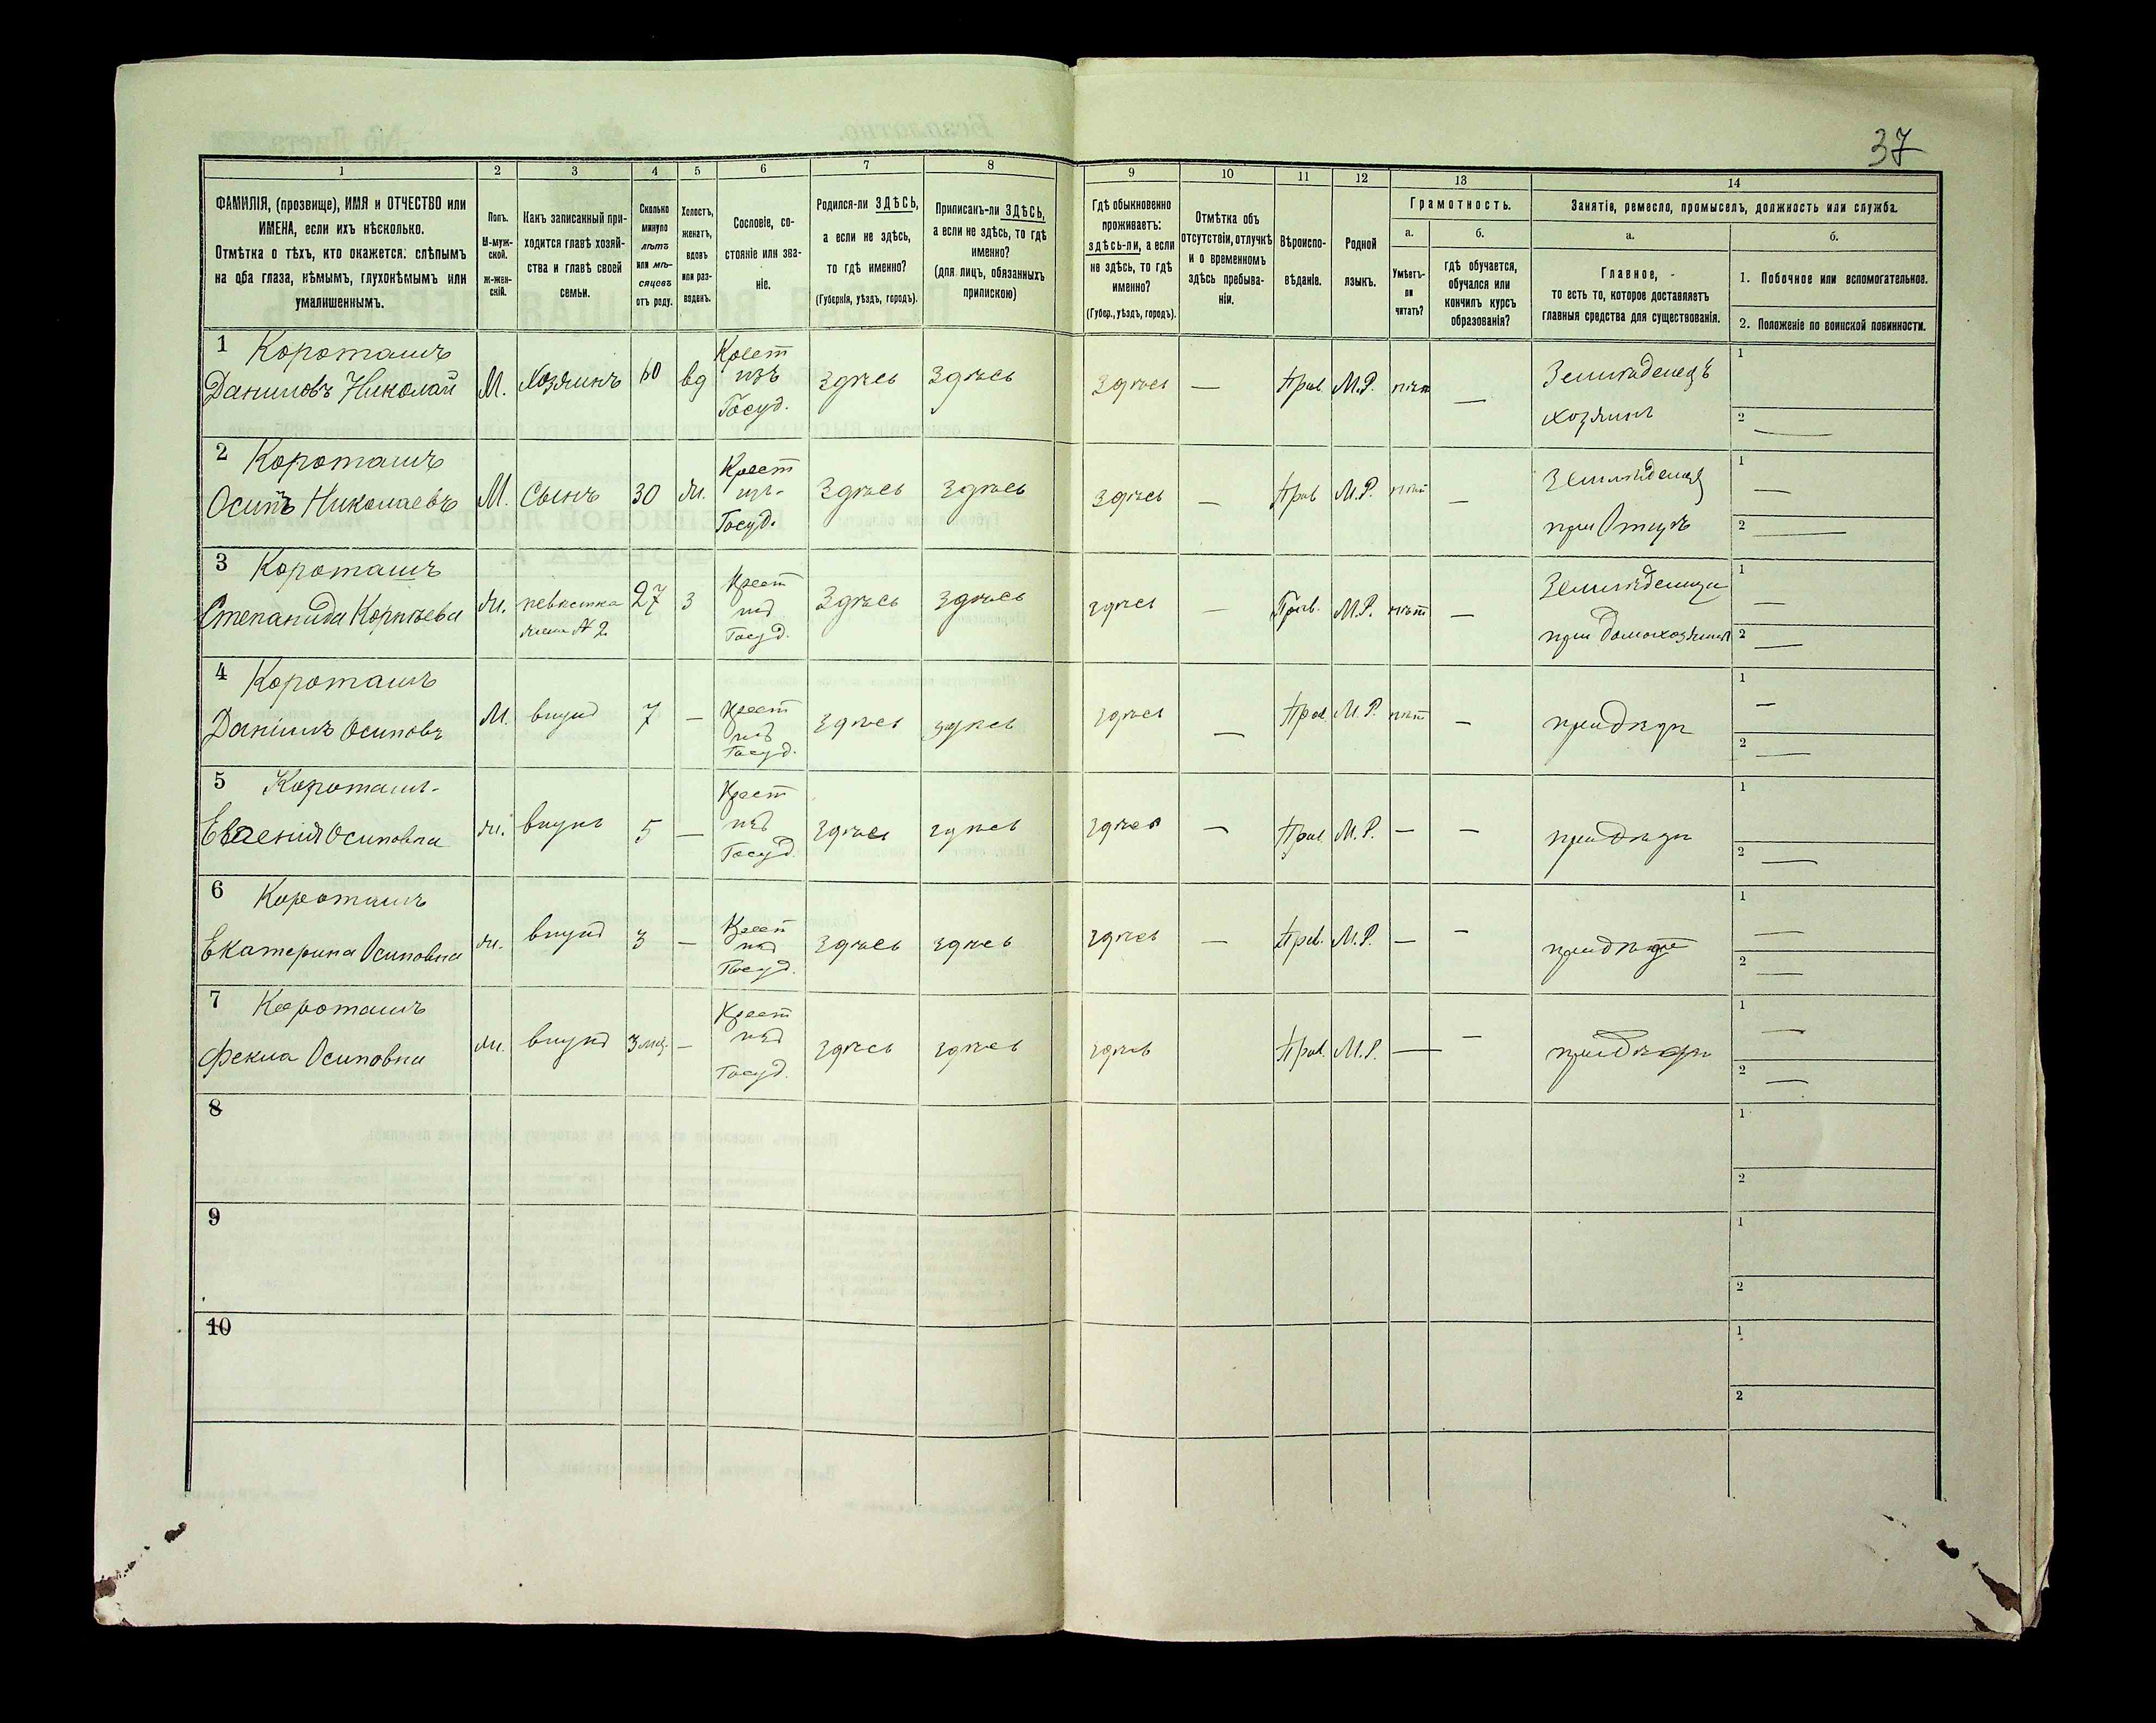 37
1 2 3 4 5 6 7 8 9 10 11 12 13 14
ФАМИЛІЯ, (прозвище), ИМЯ и ОТЧЕСТВО или
ИМЕНА, если ихъ нѣсколько.
Отмѣтка о тѣхъ, кто окажется: слѣпымъ
на оба глаза, нѣмымъ, глухонѣмымъ или
умалишеннымъ.
Полъ.
М-муж-
ской.
ж-жен-
скій.
Какъ записанный при-
ходится главѣ хозяй-
ства и главѣ своей
семьи.
Сколько
минуло
лѣтъ
или мѣ-
сяцевъ
отъ роду.
Холостъ,
женатъ,
вдовъ
или раз-
веденъ.
Сословіе, со-
стояніе или зва-
ніе.
Родился-ли ЗДѢСЬ,
а если не здѣсь,
то гдѣ именно?
(Губернія, уѣздъ, городъ).
Приписанъ-ли ЗДѢСЬ,
а если не здѣсь, то гдѣ
именно?
(для лицъ, обязанныхъ
припискою)
Гдѣ обыкновенно
проживаетъ:
здѣсь-ли, а если
не здѣсь, то гдѣ
именно?
(Губер., уѣздъ, городъ).
Отмѣтка объ
отсутствіи, отлучкѣ
и о временномъ
здѣсь пребыва-
ніи.
Вѣроиспо-
вѣданіе.
Родной
языкъ.
Грамотность.
а.
Умѣетъ-
ли
читать?
б.
гдѣ обучается,
обучался или
кончилъ курсъ
образованія?
Занятіе, ремесло, промыселъ, должность или служба.
а.
Главное,
то есть то, которое доставляетъ
главныя средства для существованія.
б.
1. Побочное или вспомогательное.
2. Положеніе по воинской повинности.
1 Короташъ
Даниловъ Николай М. Хозяинъ 60 вд Крест изъ Госуд. Здѣсь Здѣсь Здѣсь — Прав М.Р. нѣт — Земледелецъ хозяинъ
1
2 —
2 Короташъ
Осипъ Николаевъ М. Сынъ 30 ж. Крест изъ Госуд. Здѣсь Здѣсь Здѣсь — Прав М.Р. нѣт — Земледелец при Отцѣ
1 —
2 —
3 Короташъ
Степанида Корнѣева ж. невестка жена № 2 27 з Крест изъ Госуд. Здѣсь Здѣсь здѣсь — Прав. М.Р. нѣт —
1 —
2 —
4 Короташъ
Даніилъ Осиповъ М. внукъ 7 — Крест изъ Госуд. здѣсь здѣсь здѣсь — Прав. М.Р. нѣт — при дѣде
1 —
2 —
5 Короташъ
Евгенія Осиповна ж. внукъ 5 — Крест изъ Госуд. здѣсь здѣсь здѣсь — Прав. М.Р. — — при дѣде
1
2 —
6 Короташъ
Екатерина Осиповна ж. внукъ 3 — Крест изъ Госуд. здѣсь здѣсь здѣсь — Прав. М.Р. — — при дѣде
1 —
2 —
7 Короташъ
Фекла Осиповна ж. внукъ 3 мц. — Крест изъ Госуд. здѣсь здѣсь здѣсь Прав. М.Р. — — при дѣде
1 —
2 —
8
1
2
9
1
2
10
1
2